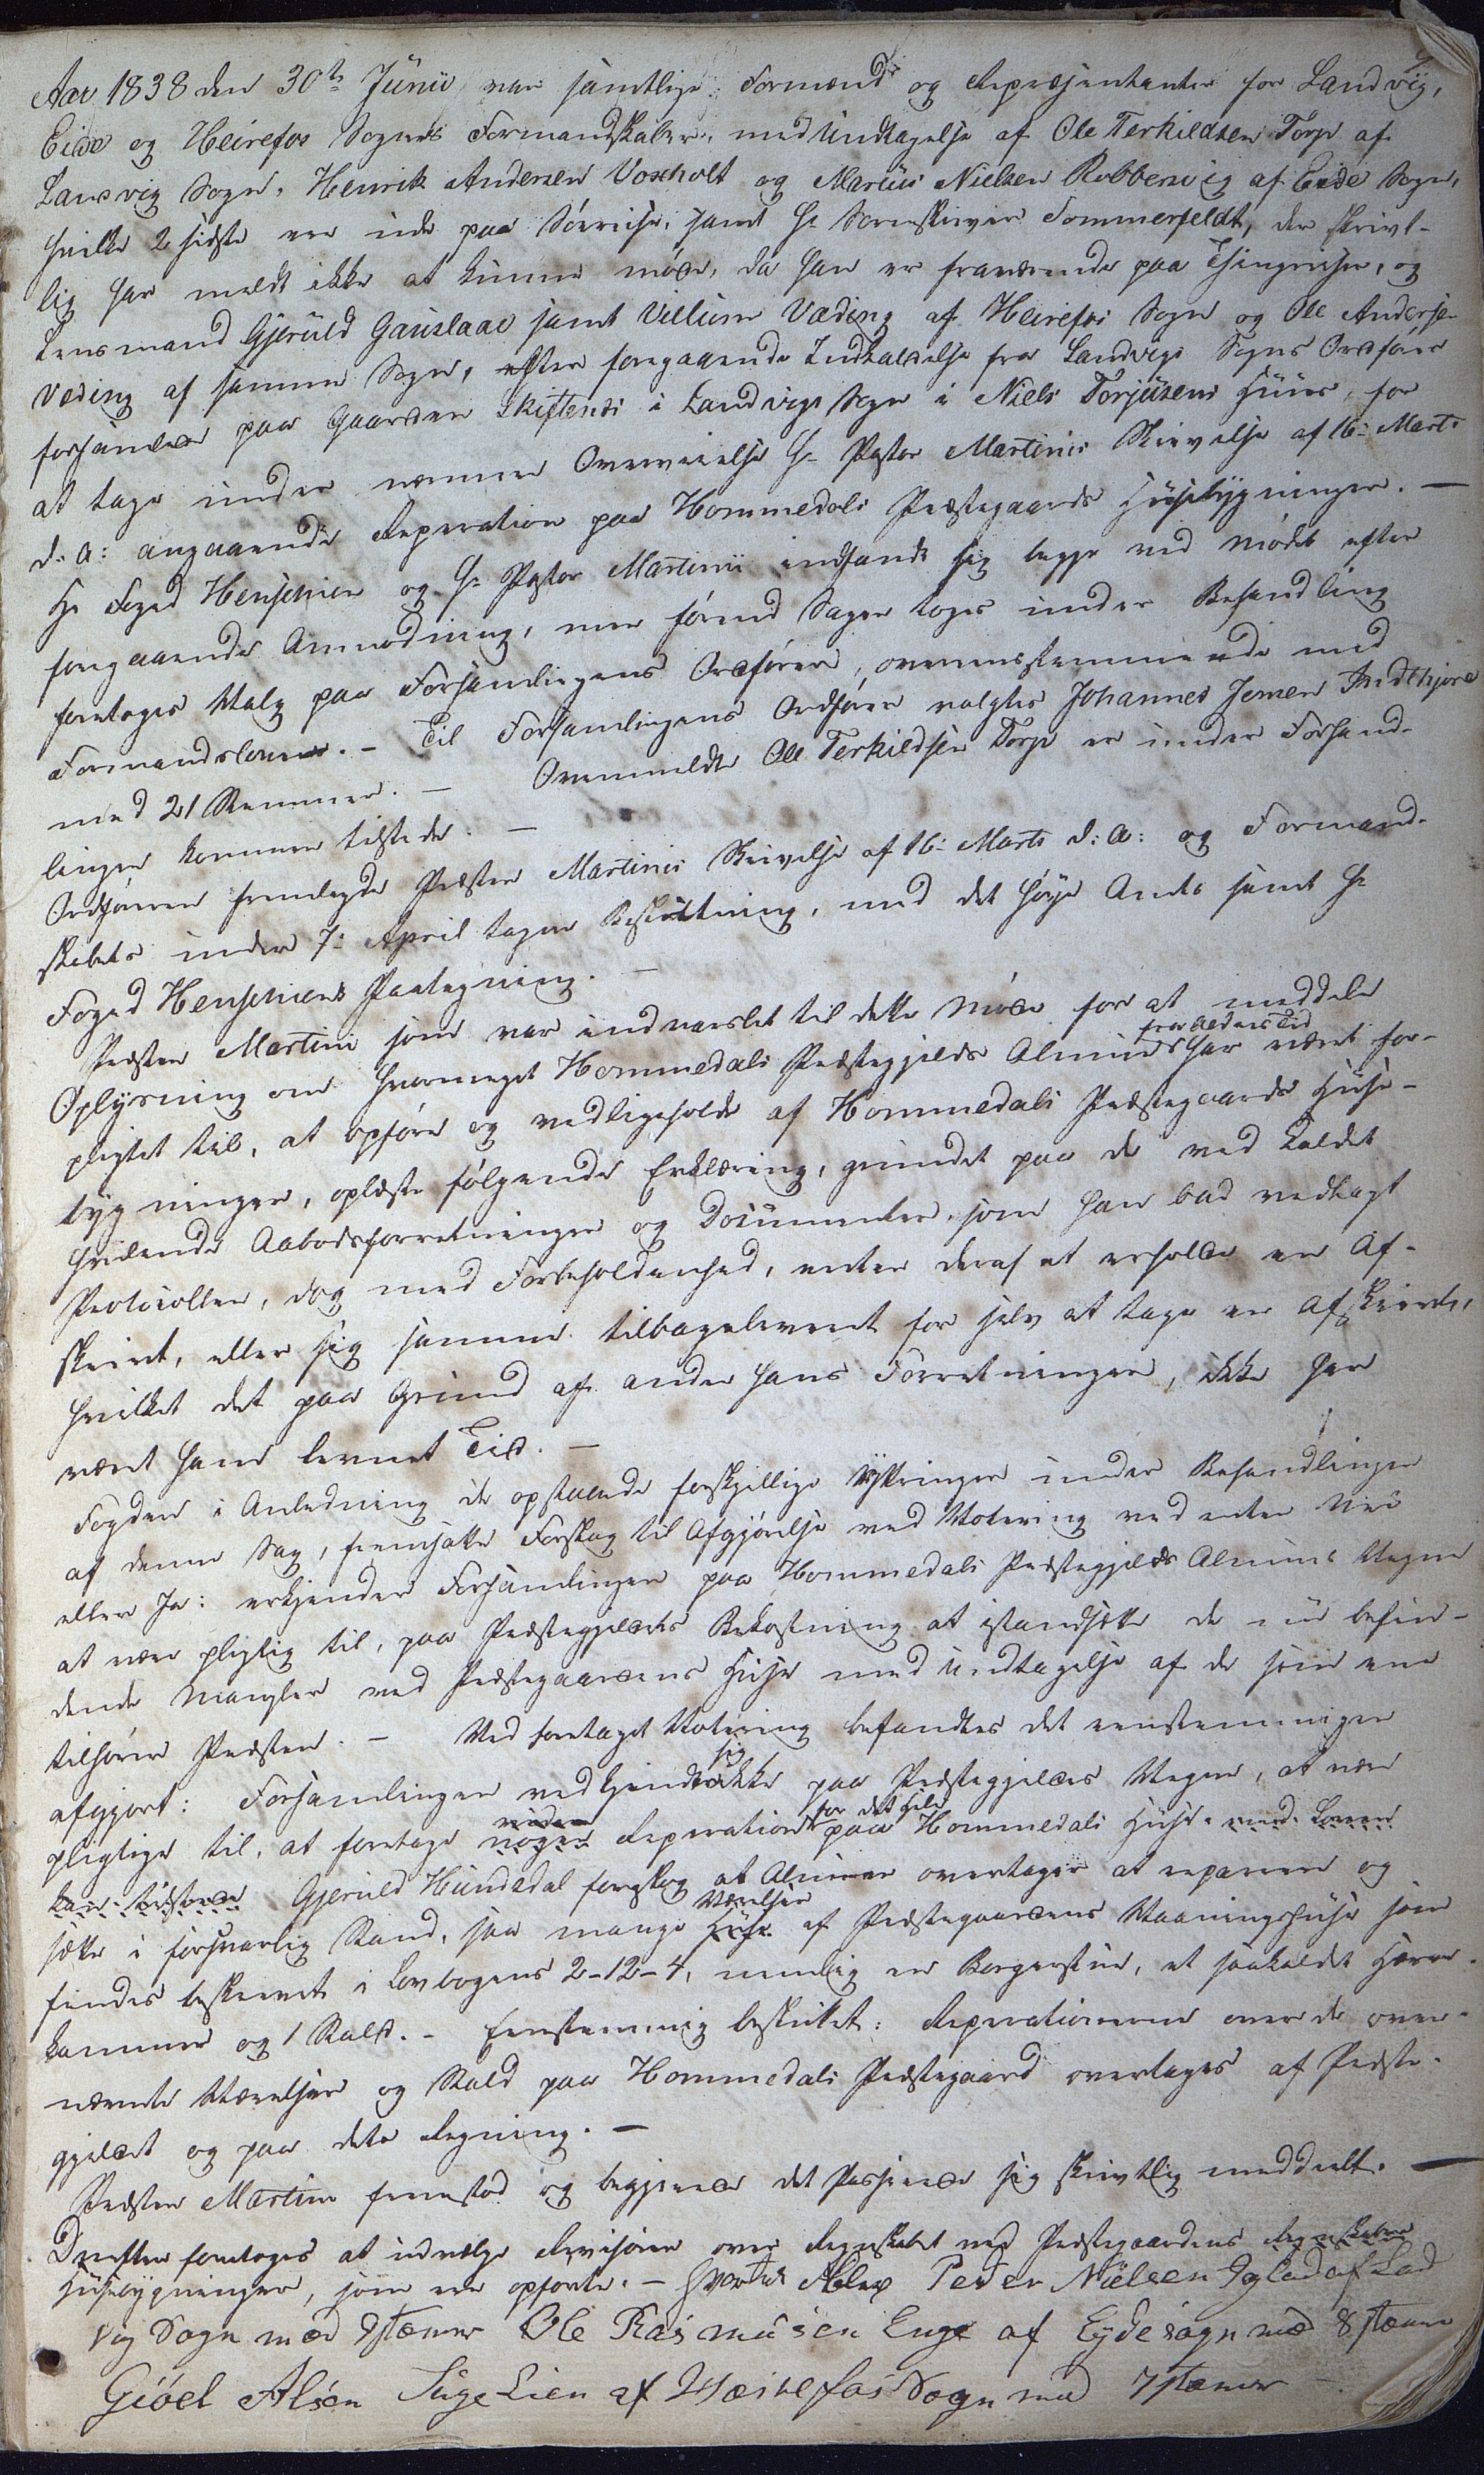 Aar 1838 den 30te Junii var samtlige Formænd og Repræsentanter for Landvig,
Eide og Heirefos Sognes Formandskaber, med Undtagelse af Ole Terkildsen Torp af
Landvig Sogn, Henrik Andersen Voxholt og Marius Nielsen Robbersvig af Eide Sogn,
hvilke 2 sidste ere ude paa Søereise, samt Hr Sorenskriver Sommerfeldt, der skrivt-
lig har meldt ikke at kunne møde, da han er fraværende paa Thingreise, og
Lensmand Gjeruld Gauslaae samt Villum Væding af Heirefos Sogn og Ole Andersen
Væding af samme Sogn, efter foregaaende Indkaldelse fra Landvigs Sogns Ordfører
forsamlede paa Gaarden Skiftenes i Landvigs Sogn i Niels Torjusens Huus, for
at tage under nærmere Overveielse Hr Pastor Martinis Skrivelse af 16: Marts
d: a: angaaende Reperation paa Hommedals Præstegaards Huusebygninger. —
Hr Foged Henschien og Hr Pastor Martini indfandt sig begge ved Mødet efter
foregaaende Anmodning, men førend Sagen toges under Behandling
foretoges Valg paa Forsamlingens Ordfører, overensstemmende med
Formandsloven. – Til Forsamlingens Ordfører valgtes Johannes Jensen Indtkjøre
med 21 Stemmer. — Ovenmeldte Ole Terkildsen Torp er under Forhand-
lingen kommen tilstede. —
Ordføreren fremlagde Præsten Martinis Skrivelse af 16: Marts d: a: og Formand-
skabets under 7: April tagne Beslutning, med det høje Amts samt Hr
Foged Henschiens Paategning. —
Præsten Martini som var indvarslet til dette Møde for at meddele
Oplysning om hvormeget Hommedals Præstegjelds Almue fra Alders Tid har været for-
pligtet til, at opføre og vedligeholde af Hommedals Præstegaards Huuse-
bygninger, oplæste følgende Erklæring, grundet paa de ved Kaldet
hvilende Aabodsforretninger og Documenter, som han bad vedtagt
Protocollen, dog med Forbeholdenhed, enten deraf at erholde en Af-
skrivt, eller sig samme tilbageleveret for selv at tage en Afskrivt,
hvilket det paa Grund af andre hans Forretninger, ikke har
været ham levnet Tid. —
Fogden i Anledning de opstaaende forskjellige Yttringer under Behandlingen
af denne Sag, fremsatte Forslag til Afgjørelse ved Votering ved enten Nei
eller Ja: erkjender Forsamlingen paa Hommedals Præstegjelds Almues Vegne
at være pligtig til, paa Præstegjeldets Bekostning at istandsætte de nu befin-
dende Mangler ved Præstegaardens Huse med Undtagelse af de som ene
tilhører Præsten. – Ved foretaget Votering befandtes det eenstemmigen
afgjort: Forsamlingen vedkjendte sig ikke paa Præstegjeldes Vegne, at være
pligtige til, at foretage nogen Reperation for det Hele paa Hommedals Huse. end Loven
kan tilstede Gjeruld Hundsdal forslog at Almuen overtager at reparere og
sætte i forsvarlig Stand, saa mange Værelser Huse af Præstegaardens Vaaningshuse som
findes beskrevet i Lovbogens 2-12-4, nemlig en Borgerstue, et saakaldet Herre-
kammer og 1 Stald. – Eenstemmig besluttet: Reperationerne over de oven-
nævnte Værelser og Stald paa Hommedals Præstegaard overtages af Præste-
gjeldet og paa dets Regning. —
Præsten Martini fremstod og begjerede det Passerede sig skrivtlig meddeelt. —
Derefter foretoges at udvælge Revisorer over Regnskabet ved Præstegaardens Regnskaber
Husebygninger, som ere opførte. – Hvortil Blev Peder Nielsen Igland af Land
Vig Sogn med 9 stemer Ole Rasmusen Enge af Eyde sogn med 8 stemer
Giöel Alsen Suge Lien af Hæirefos Sogn med 7 stemer